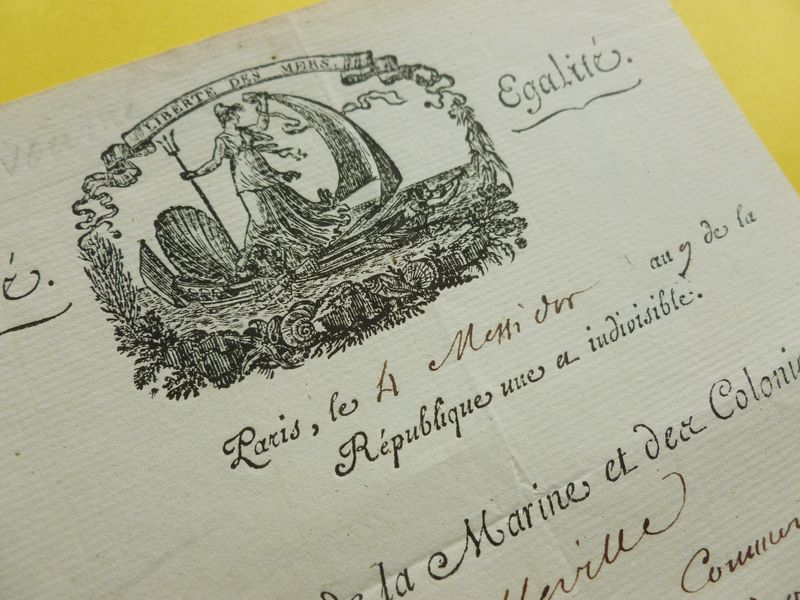 LIBERTE DES MERS.
Egalité.
é.
Paris, le 4 Messidor an 9 de la
République une et indivisible.
de la Marine et des Colonie
lleville